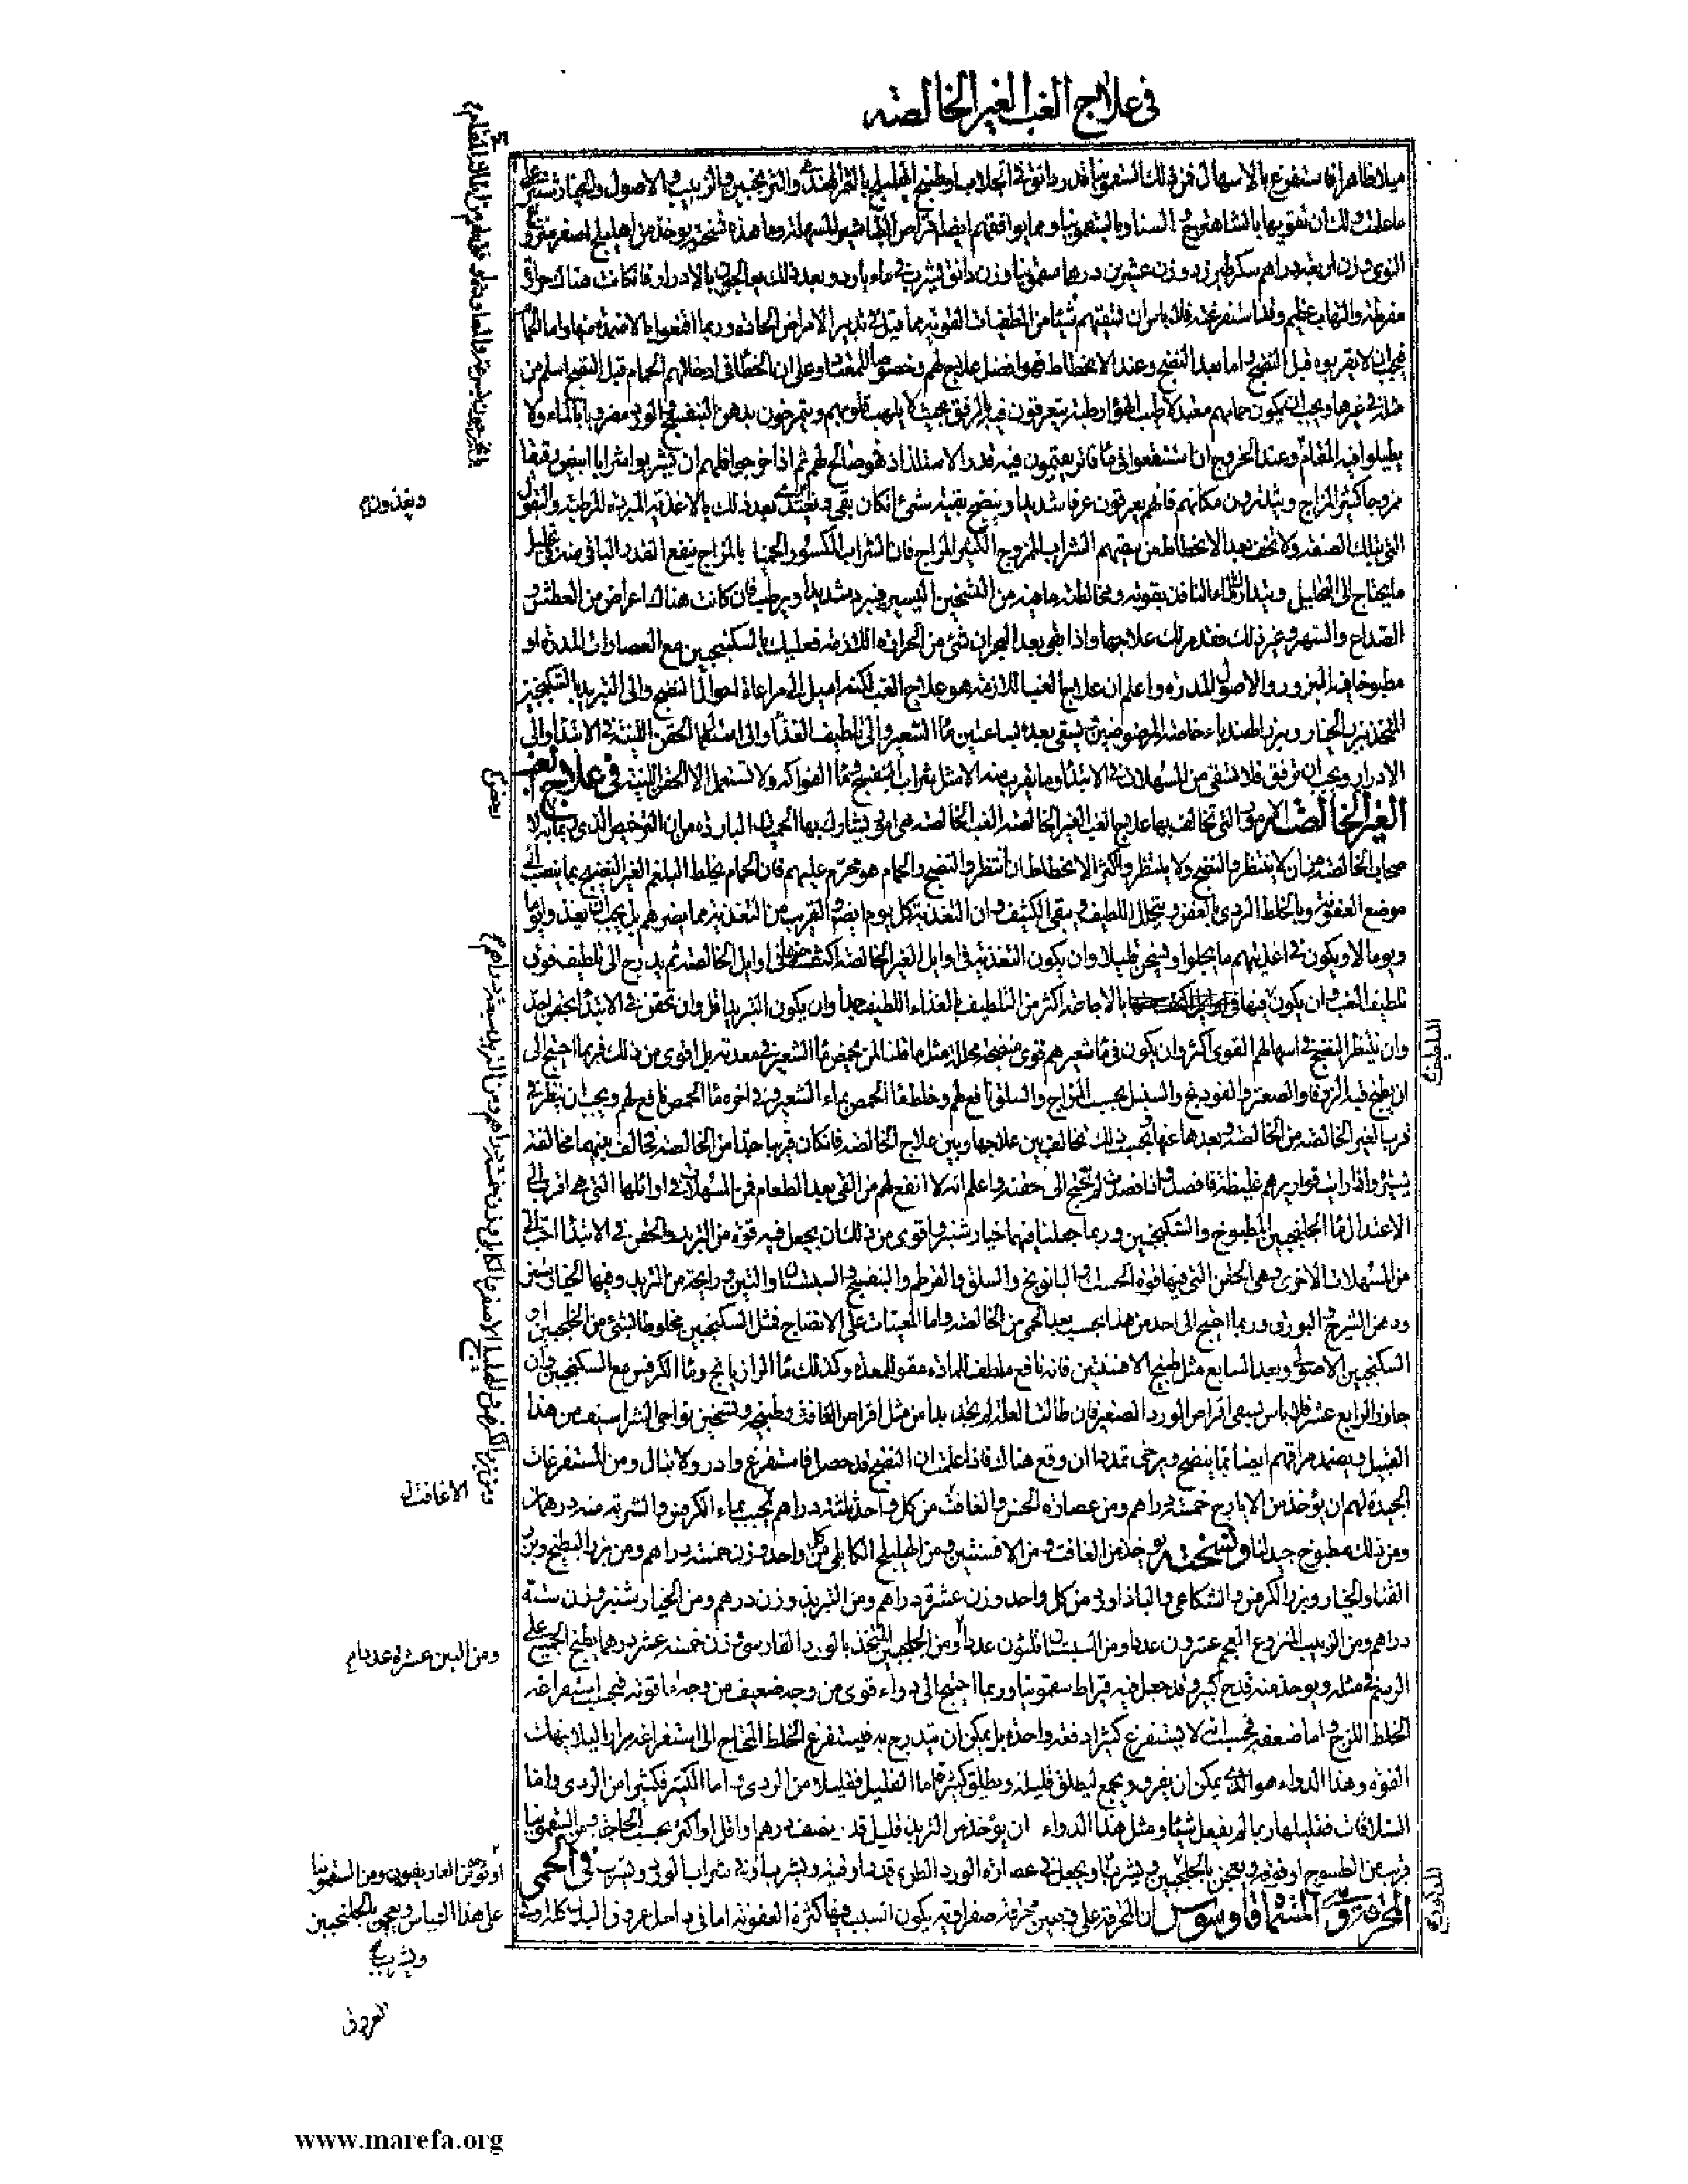 في علاج الغب الغير الخالصة
ميلا ظاهرا فاستفرغ بالاسهال فمن ذلك السقمونيا قدر دانق في الجلاب او طبيخ الهليلج بالتمر الهندي والترنجبين والزبيب والاصول والخيار شنبر على
ما علمت ولك ان تقويها بالشاهترج السنا وبالسقمونيا ومما يوافقهم ايضا اقراص الطباشير المسهلة وما هذه نسخته يؤخذ من اهليلج اصفر منزوع
النوى وزن اربعة دراهم سكر طبرزد وزن عشرين درهما سقمونيا وزن دانق يشرب في ماء بارد وبعد ذلك بالادرار فان كانت هناك حرارة
مفرطة والتهاب عظيم وقد استفرغته فلا بأس ان تسقيهم شيئا من المطفيات القوية مما قيل في تدبير الامراض الحادة وربما اقنعوا بالاضمدة منها واما الحمام
فيجب ان لا يقربوه قبل النضج واما بعد النضج وعند الانحطاط فهو افضل علاج لهم وخصوصا للمعتاد وعلى ان الخطا في ادخالهم الحمام قبل النضج اسلم من
مثله في غيرها ويجب ان يكون حمامهم معتدلا طيب الهواء رطبه يتعرقون فيه بالرفق بحيث لا يلهب قلوبهم ويتمرخون بدهن البنفسج والورد مضروبا بالماء ولا
يطيلوا فيه المقام وعند الخروج ان استنقعوا في ماء فاتر يقيمون فيه قدر الاستلذاذ فهو صالح لهم ثم اذا خرجوا فلهم ان يشربوا شرابا ابيض رقيقا
ممزوجا كثير المزاج ويتدثرون مكانهم فانهم يعرقون عرقا شديدا وينضج بقية شيء ان كان بقي بعد ذلك بالاغذية المبردة المرطبة والبقول
التي بتلك الصفة ولا تخف بعد الانحطاط من سقيهم الشراب الممزوج الكثير المزاج فان الشراب المكسور الحميا بالمزاج ينفع القدر الباقي منه في تحليل
ما يحتاج الى التحليل ويتدارك الماء النافذ بقوته ومخالطته ما فيه من التسخين اليسير فيبرد شديدا ويرطب فان كانت هناك اعراض من العطش و
الصداع والسهر وغير ذلك فقد مر لك علاجها واذا بقي بعد البحران شيء من الحرارة اللازمة فعليك بالسكنجبين مع العصارات المدرة او
مطبوخا فيه البزور والاصول المدرة واعلم ان علاج الغب اللازمة هو علاج الغب لكنه اميل الى مراعاة احوال النضج والى التبريد بالسكنجبين
المتخذ ببزر الخيار وبزر الهندباء خاصة المرضوضين يسقى بعده بساعتين ماء الشعير والى تلطيف الغذاء والى استعمال الحقن اللينة في الابتداء والى
الادرار ويجب ان ترفق فلا تسقى من المسهلات في الابتداء وما يقرب منه الا مثل شراب البنفسج وماء الفواكه ولا تستعمل الا الحقن اللينة في علاج الغب
الغير الخالصة الامور التي تخالف بها علاج الغب الغير الخالصة الغب الخالصة هي امور يشارك بها الحميات الباردة من ان الترخيص الذي ربما يدلا
صحاب الخالصة من ان لا ينتظروا النضج ولا ينتظروا اكثر الانحطاط ان انتظروا النضج والحمام هو محرم عليهم فان الحمام يخلط البلغم الغير النضيج بما ينصب الى
موضع العفونة وبالخلط الردي بالعفن ويتحلل اللطيف ويبقى الكثيف وان التغذية كل يوم ايضا والقريب من التغذية مما يضرهم بل يجب ان يغذوا يوما
ويوما لا ويكون في اغذيتهم ما يجلو او يسخن قليلا وان يكون التغذية في اوايل الغير الخالصة اكثر منها في اوايل الخالصة ثم يدرج الى تلطيف فوق
تلطيف الغب وان يكون فيها بالاجاصة اكثر من التلطيف بالغذاء اللطيف جدا وان يكون التبريد اقل وان تحقن في الابتداء بحقن احد
وان ينتظر النضج في اسهالهم القوي اكثر وان يكون في ماء شعيرهم قوى منضجة محللة مثل ما قلنا لمن يحمض ماء الشعير في معدته بل اقوى من ذلك فربما احتيج الى
ان يطبخ فيه الزوفا والصعتر والفودنج والسنبل بحسب المزاج والسلق نافع لهم وخلط ماء الحمص بماء الشعير وفي اخره ماء الحمص نافع لهم ويجب ان ينظر في
قرب الغير الخالصة من الخالصة وبعدها عنها وبحسب ذلك تخالف بين علاجها وبين علاج الخالصة فان كان قريبا جدا من الخالصة فخالف بينهما مخالفة
يسيرة واذا رايت قواريرهم غليظة فافصد فان فصدت لم تحتج الى حقنة واعلم انه لا انفع لهم من القي بعد الطعام فمن المسهلات في اوائلها التي هي اقرب الى
الاعتدال ماء الجلنجبين المطبوخ والسكنجبين وربما جعلنا فيهما خيار شنبر واقوى من ذلك ان يجعل فيه قوة من التربد والحقن في الابتداء احب الي
من المسهلات الاخرى وهي الحقن التي فيها قوة الحسك والبابونج والسلق والقرطم والبنفسج والسبستان والتين ورايحة من التربد وفيها الخيار شنبر
ودهن الشيرج والبورق وربما احتيج الى احد من هذا بحسب بعد الحمى من الخالصة واما المعينات على الانضاج فمثل السكنجبين مخلوطا بشيء من الجلنجبين او
السكنجبين الاصولي وبعد السابع مثل طبيخ الافسنتين فانه نافع ملطف للمادة مقو للمعدة وكذلك ماء الرازيانج وماء الكرفس مع السكنجبين وان
جاوز الرابع عشر فلا باس بسقي اقراص الورد الصغير فان طالت العلة لم تجد بدا من مثل اقراص الغافث وطبيخه وتسخين نواحي الشراسيف من هذا
القبيل ويضمد مراقهم ايضا بما ينضج ويرخي تمددها ان وقع هناك فاذا علمت ان النضج قد حصل فاستفرغ وادر ولا تبال ومن المستفرغات
الجيدة لهم ان يؤخذ من الايارج خمسة دراهم ومن عصارة الخس والغافث من كل واحد ثلثة دراهم يحبب بماء الكرفس والشربة منه درهمان
ومن ذلك مطبوخ جيد لنا ونسخته يؤخذ من الغافت ومن الافسنتين ومن الهليلج الكابلي من كل واحد وزن خمسة دراهم ومن بزر البطيخ وبزر
القثاء والخيار وبزر الكرفس والشكاعى والباذاورد من كل واحد وزن عشرة دراهم ومن التربد وزن درهم ومن الخيار شنبر وزن ستة
دراهم ومن الزبيب المنزوع العجم عشرون عددا ومن السبستان ثلثون عددا ومن الجلنجبين المتخذ بالورد الفارسي وزن خمسة عشر درهما يطبخ الجميع على
الرسم في مثله ويوخذ منه قدح كبير وقد جعل فيه قيراط سقمونيا وربما احتيج الى دواء قوي من وجه ضعيف من وجه فاما قوته فبحسب استفراغه
الخلط اللزج واما ضعفه فبحسب انه لا يستفرغ كثيرا دفعة واحدة بل يمكن ان يتدرج به فيستفرغ الخلط المحتاج الى استفراغه مرارا لئلا ينهك
القوة وهذا الدواء هو الذي يمكن ان يفرق ويجمع ليطلق قليله ويطلق كثيره اما القليل فقليلا من الردي واما الكثير فكثيرا من الردي واما
السلاقات فقليلها ربما لم يفعل شيئا ومثل هذا الدواء ان يؤخذ من التربد قليل قدر نصف درهم او اقل او اكثر بحسب الحاجة ومن السقمونيا
قريب من الطسوج او فوقه ويعجن بالجلنجبين ويشرب او يجعل في عصارة الورد الطري قدر اوقية ويشرب او في شراب الورد ويشرب في الحمى
المحرقة المسماة قاوسوس ان المحرقة على وجهين محرقة صفراوية يكون السبب فيها كثرة العفونة اما في داخل عروق البدن كله او في
ويغذون م
بعض
التلطيف
الا غافث
ومن التين عشرة عدد ام
او فوقه ومن الغاريقون ومن السقمونيا
على هذا القياس ويعجن بالجلنجبين
ويشرب
العروق
www.marefa.org